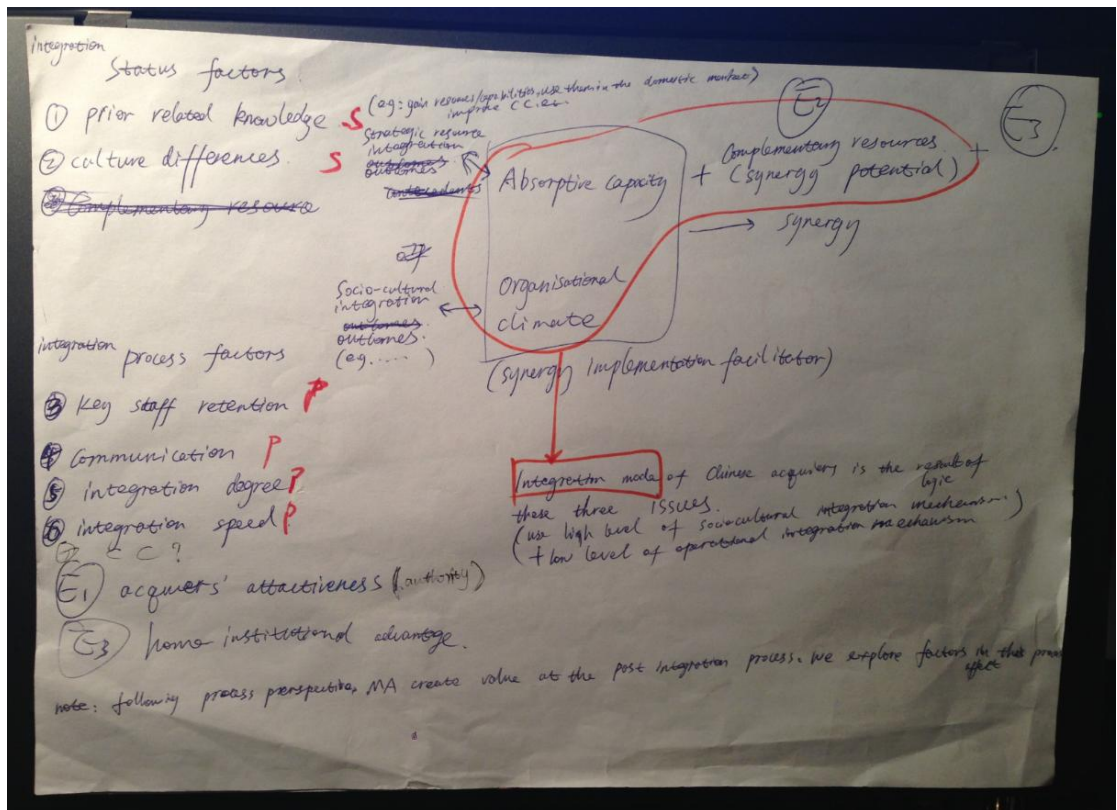 integration
Status factors
① prior related knowledge S
② culture differences. S
③ Complementary resource
(eg: gain resources/capabilities, use them in the domestic market)
improve C C. etc.
Strategic resource
integration
outcomes.
outcomes
antecedents
Absorptive capacity
+
E2
Complementary resources
(synergy potential)
+
E3.
→ synergy
Socio-cultural
integration
outcomes.
outcomes.
(eg. .....)
Organisational
climate
(synergy implementation facilitator)
integration
process factors
③ Key staff retention P
④ Communication P
⑤ integration degree P
⑥ integration speed P
⑦ C C ?
E1 acquiers' attactiveness (authority)
E3 home institutional advantage.
Integration mode of Chinese acquiers is the result of
logic
these three issues.
(use high level of sociocultural integration mechanism.)
(+ low level of operational integration maechanism
note: following process prerspective, MA create value at the post integration process. we explore factors in this
effect